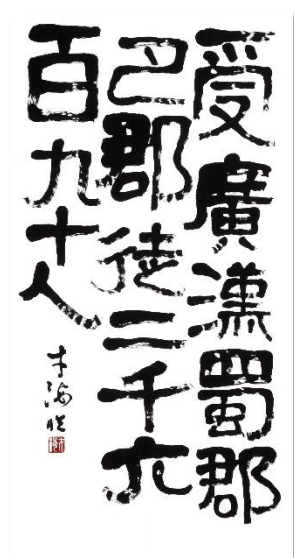 受廣漢蜀郡
巴郡徒二千六
百九十人